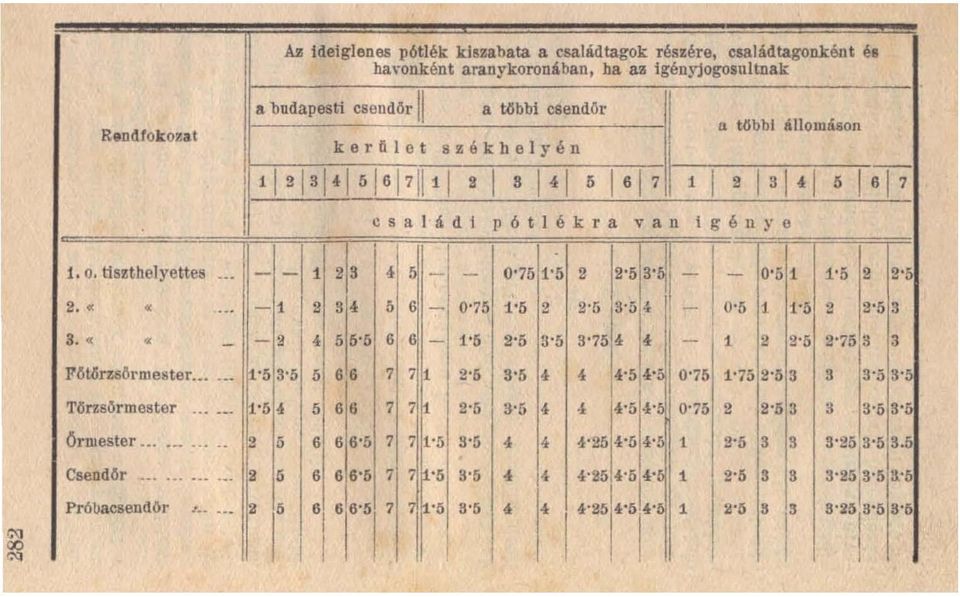 Az ideiglenes pótlék kiszabata a családtagok részére, családtagonként és
havonként aranykoronában, ha az igényjogosultnak
Rendfokozat
a budapesti csendőr a többi csendőr
a többi állomáson
kerület székhelyén
1 2 3 4 5 6 7 1 2 3 4 5 6 7 1 2 3 4 5 6 7
családi pótlékra van igénye
1. o. tiszthelyettes ... — — 1 2 3 4 5 — — 0·75 1·5 2 2·5 3·5 — — 0·5 1 1·5 2 2·5
2. « « .... — 1 2 3 4 5 6 — 0·75 1·5 2 2·5 3·5 4 — 0·5 1 1·5 2 2·5 3
3. « « — — 2 4 5 5·5 6 6 — 1·5 2·5 3·5 3·75 4 4 — 1 2 2·5 2·75 3 3
Főtörzsőrmester... ... 1·5 3·5 5 6 6 7 7 1 2·5 3·5 4 4 4·5 4·5 0·75 1·75 2·5 3 3 3·5 3·5
Törzsőrmester ... ... 1·5 4 5 6 6 7 7 1 2·5 3·5 4 4 4·5 4·5 0·75 2 2·5 3 3 3·5 3·5
Őrmester ... ... ... ... 2 5 6 6 6·5 7 7 1·5 3·5 4 4 4·25 4·5 4·5 1 2·5 3 3 3·25 3·5 3.5
Csendőr ... ... ... ... 2 5 6 6 6·5 7 7 1·5 3·5 4 4 4·25 4·5 4·5 1 2·5 3 3 3·25 3·5 3·5
Próbacsendőr ... ... 2 5 6 6 6·5 7 7 1·5 3·5 4 4 4·25 4·5 4·5 1 2·5 3 3 3·25 3·5 3·5
282